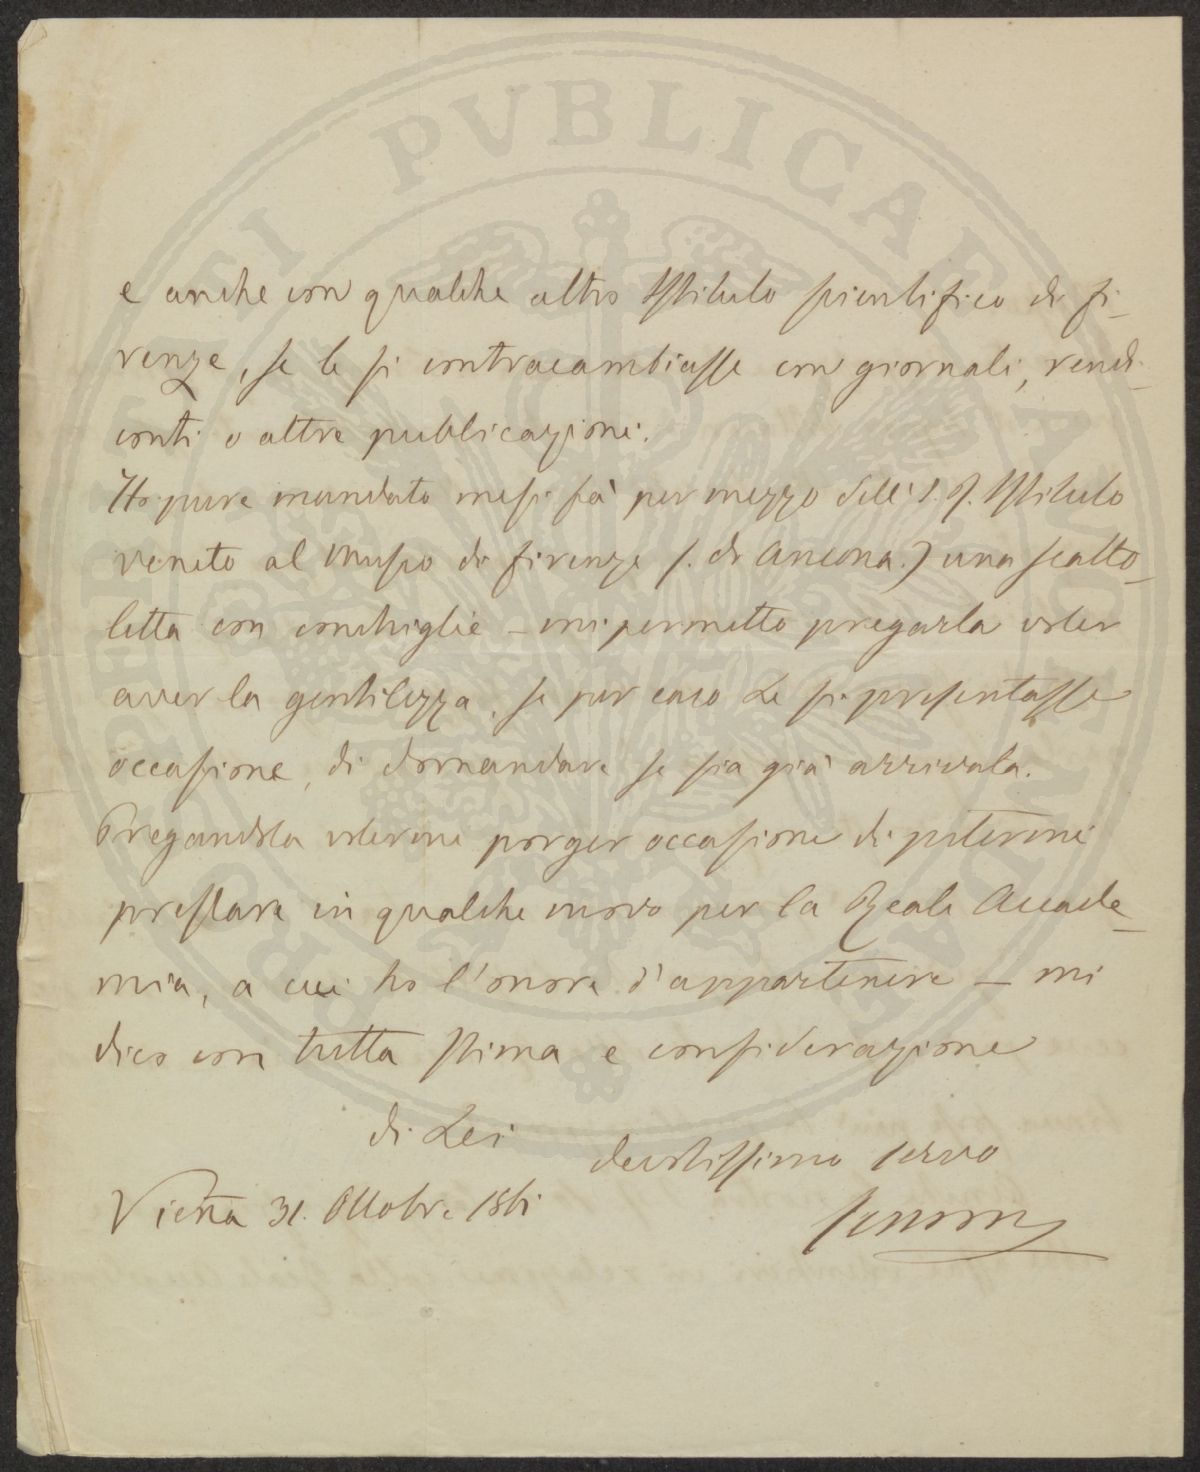 e anche con qualche altro Istituto scientifico di Fi-
renze, se le si contracambiasse con giornali, rendi-
conti o altre pubblicazioni.
Ho pure mandato mesi fà per mezzo dell' I. R. Istituto
veneto al Museo di Firenze (S. di Ancona.) una scatto-
letta con conchiglie – mi permetto pregarla voler
aver la gentilezza, se per caso Le si presentasse
occasione, di domandare se sia già arrivata.
Pregandola volermi porger occasione di potermi
prestare in qualche modo per la Reale Accade-
mia, a cui ho l'onore d'appartenere – mi
dico con tutta stima e considerazione
di Lei
devotissimo servo
Vieña 31. Ottobre 1861
Senoner
PROSPERITATI PUBLICAE AUGENDAE